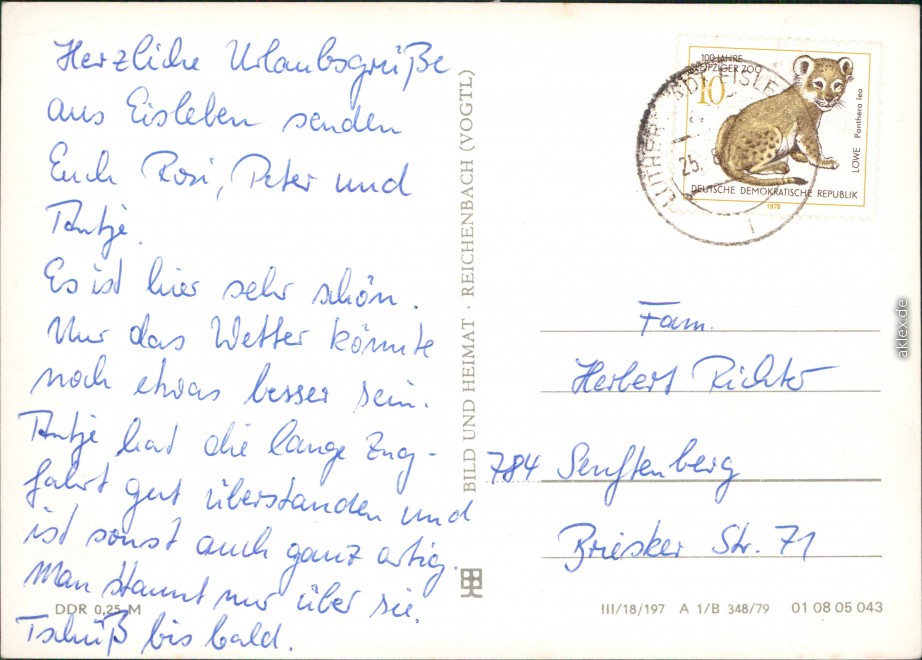 Herzliche Urlaubsgrüße
aus Eisleben senden
Euch Rosi, Peter und
Antje.
Es ist hier sehr schön.
Nur das Wetter könnte
noch etwas besser sein.
Antje hat die lange Zug-
fahrt gut überstanden und
ist sonst auch ganz artig.
Man staunt nur über sie.
Tschüß bis bald.
DDR 0,25 M
BILD UND HEIMAT · REICHENBACH (VOGTL)
100 JAHRE
LEIPZIGER ZOO
10
LÖWE Panthera leo
DEUTSCHE DEMOKRATISCHE REPUBLIK
1978
25.
Fam.
Herbert Richter
784 Senftenberg
Briesker Str. 71
III/18/197 A 1/B 348/79 01 08 05 043
aklex.de